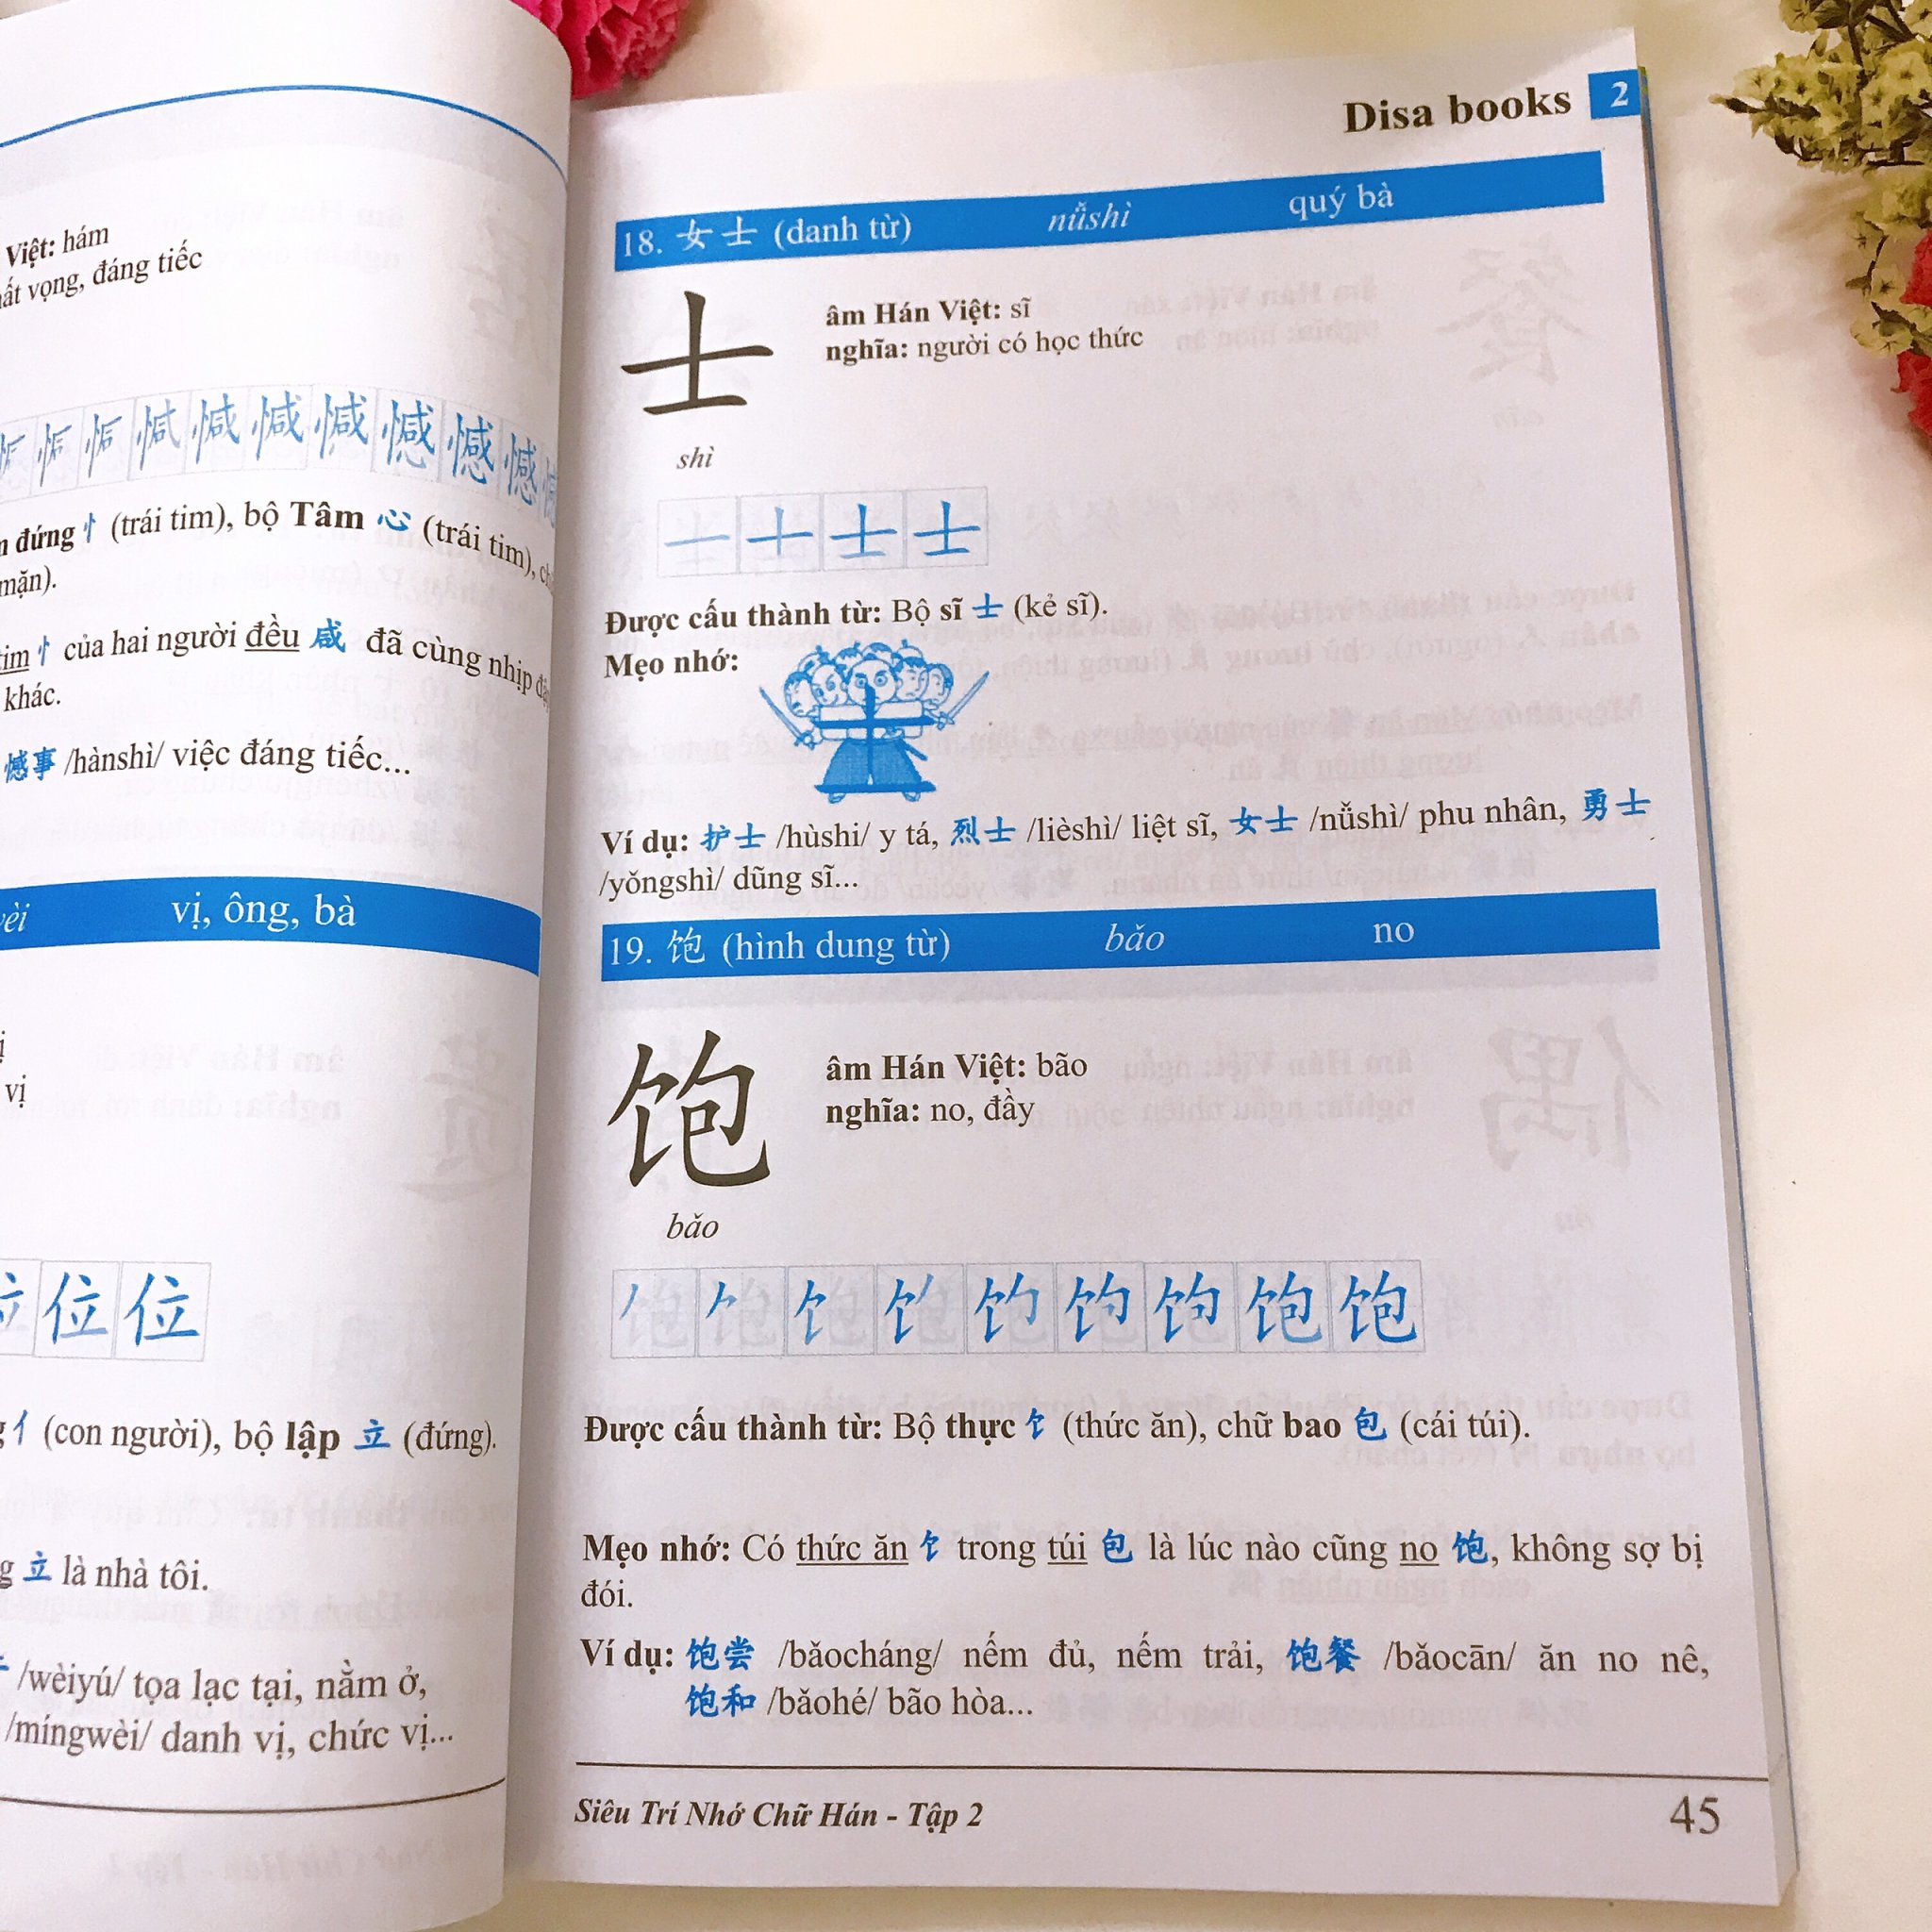 Việt: hám
vọng, đáng tiếc
đứng 忄 (trái tim), bộ Tâm 心 (trái tim),
mặn).
tim 忄 của hai người đều 咸 đã cùng nhịp
khác.
憾事 /hànshì/ việc đáng tiếc...
vị, ông, bà
vị
位 位
亻 (con người), bộ lập 立 (đứng).
立 là nhà tôi.
/wèiyú/ tọa lạc tại, nằm ở,
/míngwèi/ danh vị, chức vị...
Disa books 2
18. 女士 (danh từ) nǚshì quý bà
士
âm Hán Việt: sĩ
nghĩa: người có học thức
shì
一 十 士 士
Được cấu thành từ: Bộ sĩ 士 (kẻ sĩ).
Mẹo nhớ:
Ví dụ: 护士 /hùshi/ y tá, 烈士 /lièshì/ liệt sĩ, 女士 /nǚshì/ phu nhân, 勇士
/yǒngshì/ dũng sĩ...
19. 饱 (hình dung từ) bǎo no
饱
âm Hán Việt: bão
nghĩa: no, đầy
bǎo
饱 饱
Được cấu thành từ: Bộ thực 饣 (thức ăn), chữ bao 包 (cái túi).
Mẹo nhớ: Có thức ăn 饣 trong túi 包 là lúc nào cũng no 饱, không sợ bị
đói.
Ví dụ: 饱尝 /bǎocháng/ nếm đủ, nếm trải, 饱餐 /bǎocān/ ăn no nê,
饱和 /bǎohé/ bão hòa...
Siêu Trí Nhớ Chữ Hán - Tập 2 45